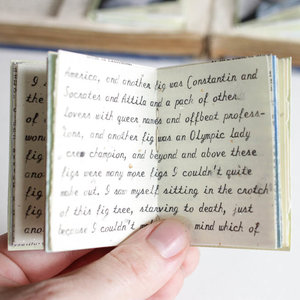 America, and another fig was Constantin and
Socrates and Attila and a pack of other
lovers with queer names and offbeat profess-
ions, and another fig was an Olympic lady
crew champion, and beyond and above these
figs were many more figs I couldn't quite
make out. I saw myself sitting in the crotch
of this fig tree, starving to death, just
because I couldn't mind which of